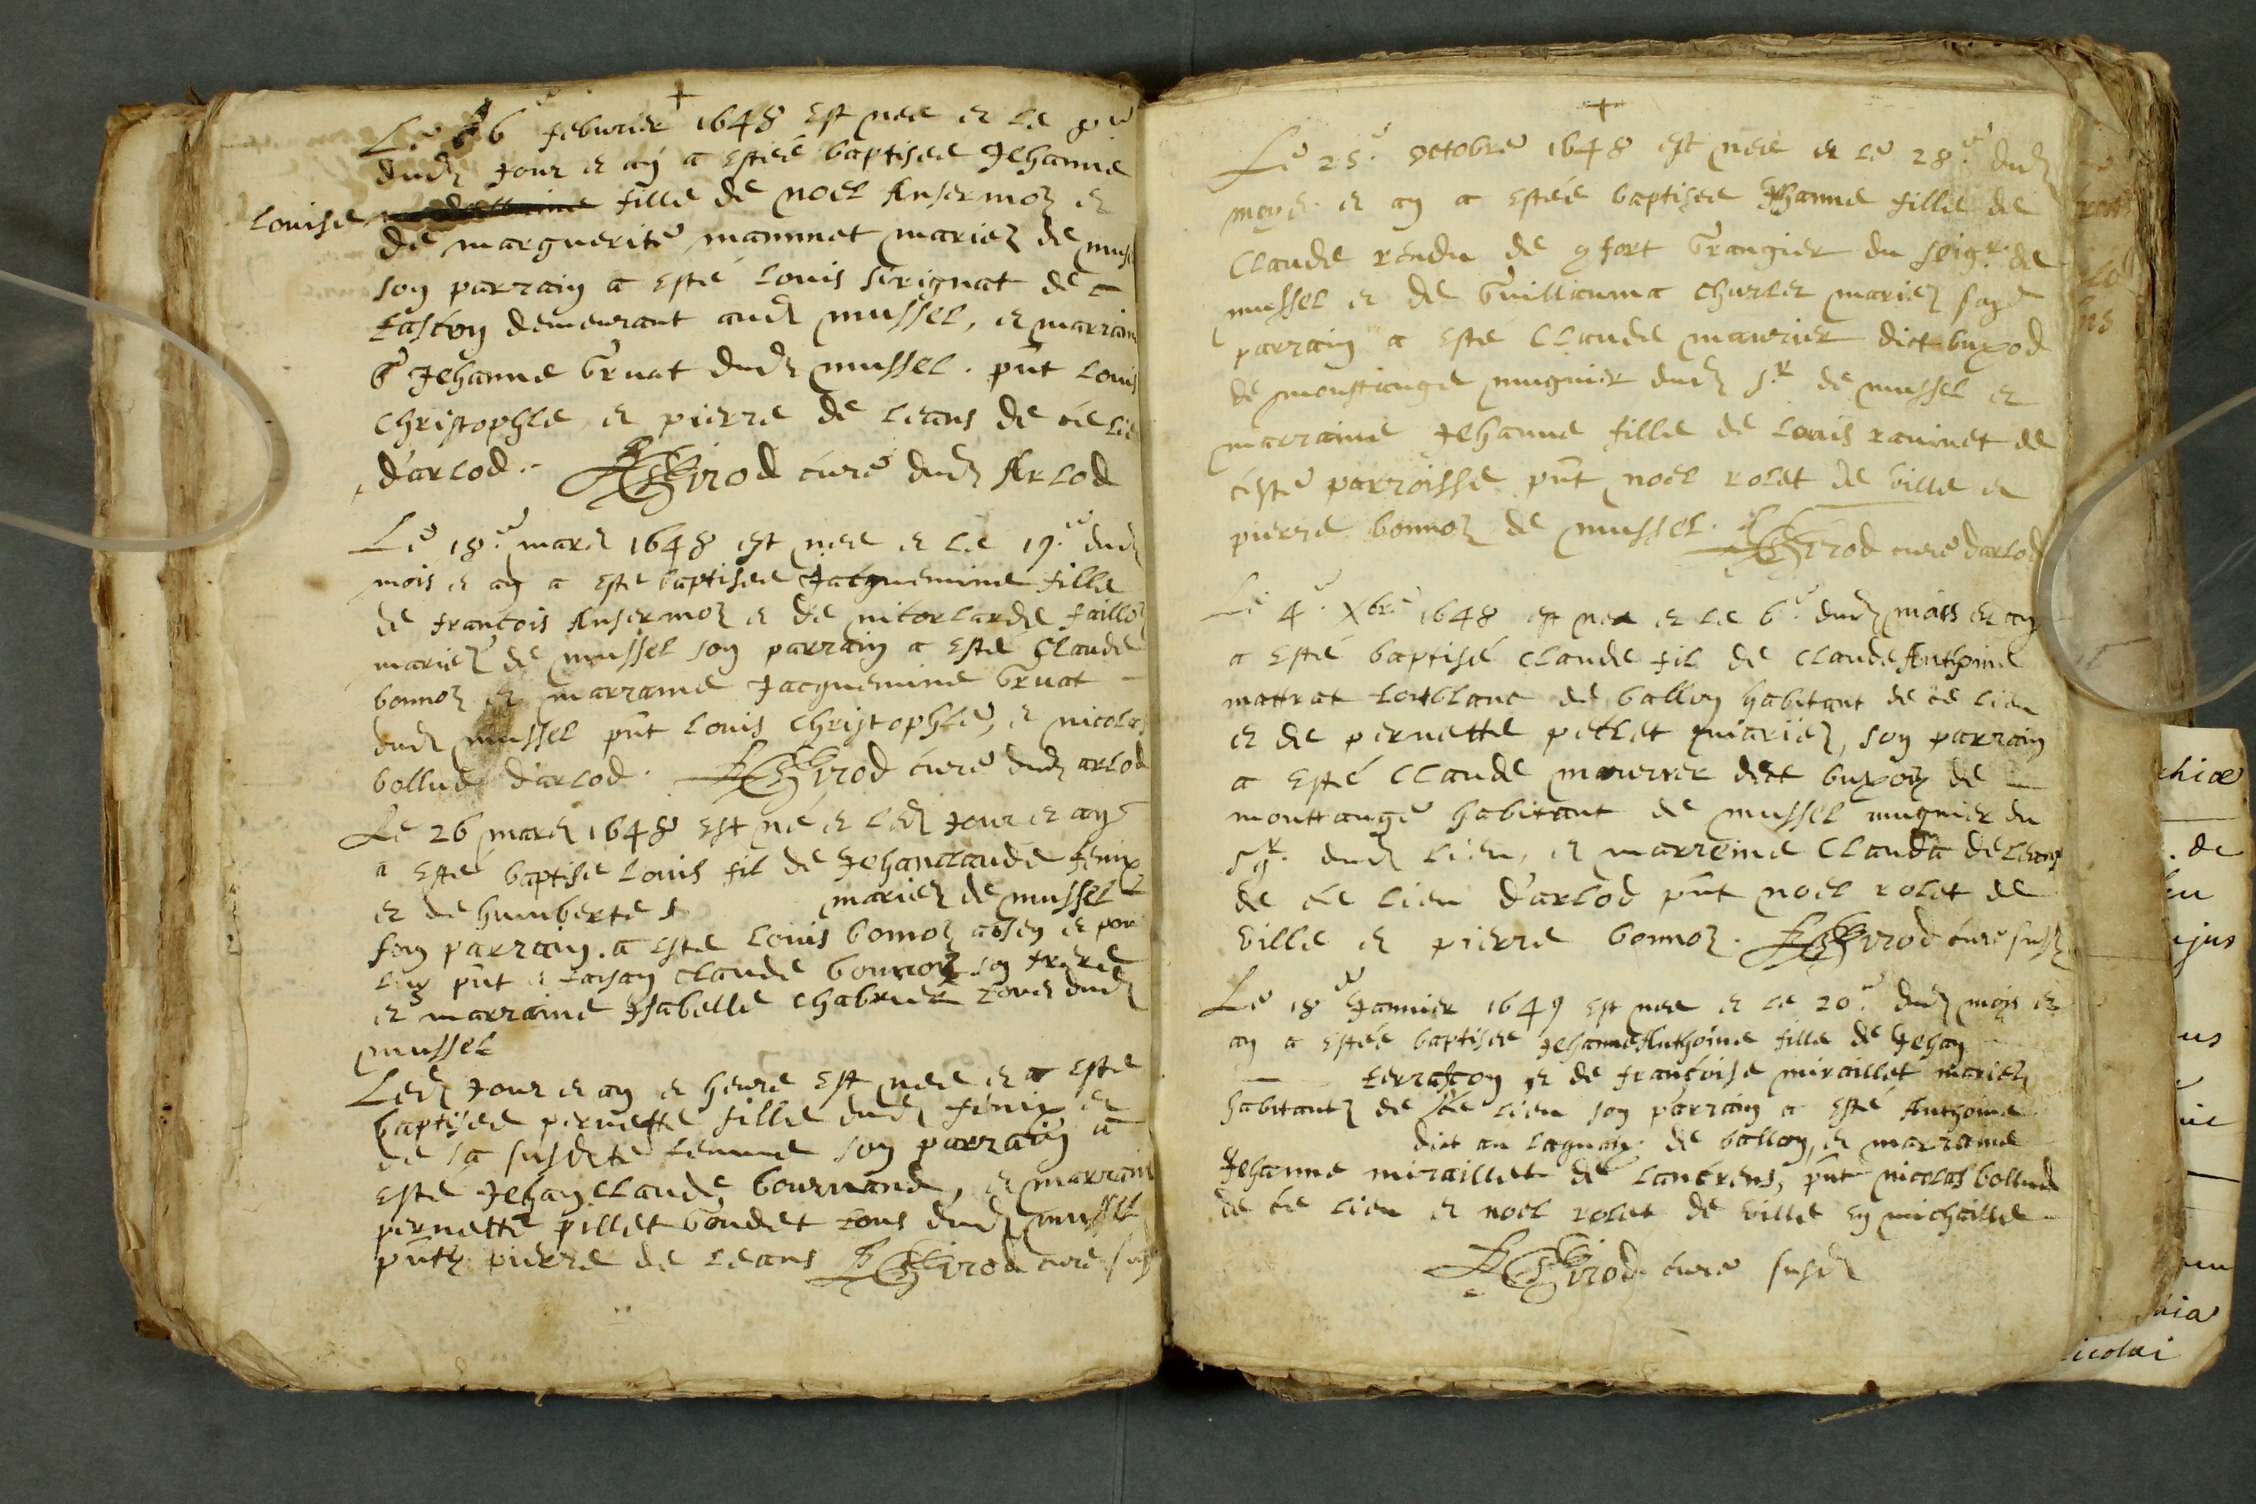 +
Le 6 febvrier 1648 est nee et le
dud jour et an a estée baptisee Jehanne
Louise fille de noel Ansermoz et
de marguerite mammet mariez de muss
son parrain a esté Louis serignat de
tascon demeurant aud mussel, et marraine
Jehanne Gruat dud mussel. pnt Louis
Christophle et pierre de Leans de ce lie
d'arlod. Girod curé dud Arlod
Le 18e mars 1648 est nee et le 19e dud
mois et an a esté baptisee Jacquemine fille
de francois Ansermoz et de nicolarde failloz
mariez de mussel son parrain a esté Claude
bonnoz et marraine Jacquemine Gruat
dud mussel pnt Louis Christophle, et nicolas
bollud d'arlod. Girod curé dud arlod
Le 26 mars 1648 est né et led jour et an
a esté baptise Louis fil de Jehanclaude fenix
et de humberte mariez de mussel
son parrain a esté Louis bonnoz absen et pour
luy pnt et faisan Claude bonnoz son frere
et marraine Isabelle Chabrier tous dud
mussel
Led jour et an et heure est nee et a esté
baptisee pernette fille dud fenix et
de sa susdte femme son parrain a
esté Jehanclaude bournand, et marraine
pernette pillet Goudet tous dud mussel
pntz pierre de Leans Girod curé susd
+
Le 25e octobre 1648 est nee et le 28e dud
moys et an a estée baptisee Jehanne fille de
Claude rendu de 9fort Grangier du seigr de
mussel et de Guillauma Charlet mariez son
parrain a esté Claude maurier dict buxod
de monttange mugnier dud sr de mussel et
marraine Jehanne fille de Louis raminet de
ceste parroisse pnt noel rolet de ville et
pierre bonnoz de mussel. Girod curé darlod
Le 4e Xbre 1648 est nea et le 6e dud mois et an
a esté baptisé Claude fil de Claude Anthoine
mattrat de ballon habitant de ce lieu
et de pernette petlet mariez, son parrain
a esté Claude maurier dict buxoz de
monttange habitant de mussel mugnier du
sgr dud lieu, et marreine Clauda deleans
de ce lieu d'arlod pnt noel rolet de
ville et pierre bonnoz. Girod curé susd
Le 18e Janvier 1649 est nee et le 20e dud mois et
an a estée baptisee Jehanne Anthoine fille de Jehan
terrascon et de francoise miraillet mariez
habitantz de ce lieu son parrain a esté Anthoine
dict au lagnay de ballon, et marraine
Jehanne miraillet de Lancrens, pnt nicolas bollud
de ce lieu et noel rolet de ville en michaille
Girod curé susd
chiæ
de
ejus
us
nia
icolai